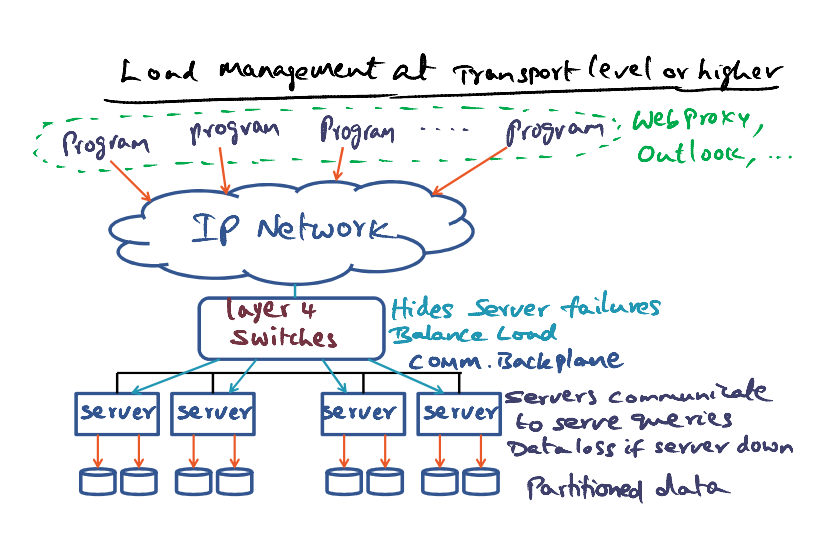 Load management at Transport level or higher
Program program Program .... program
Web Proxy,
Outlook, ...
IP Network
Layer 4
Switches
Hides Server failures
Balance Load
Comm. Backplane
server server server server
Servers communicate
to serve queries
Data loss if server down
Partitioned data